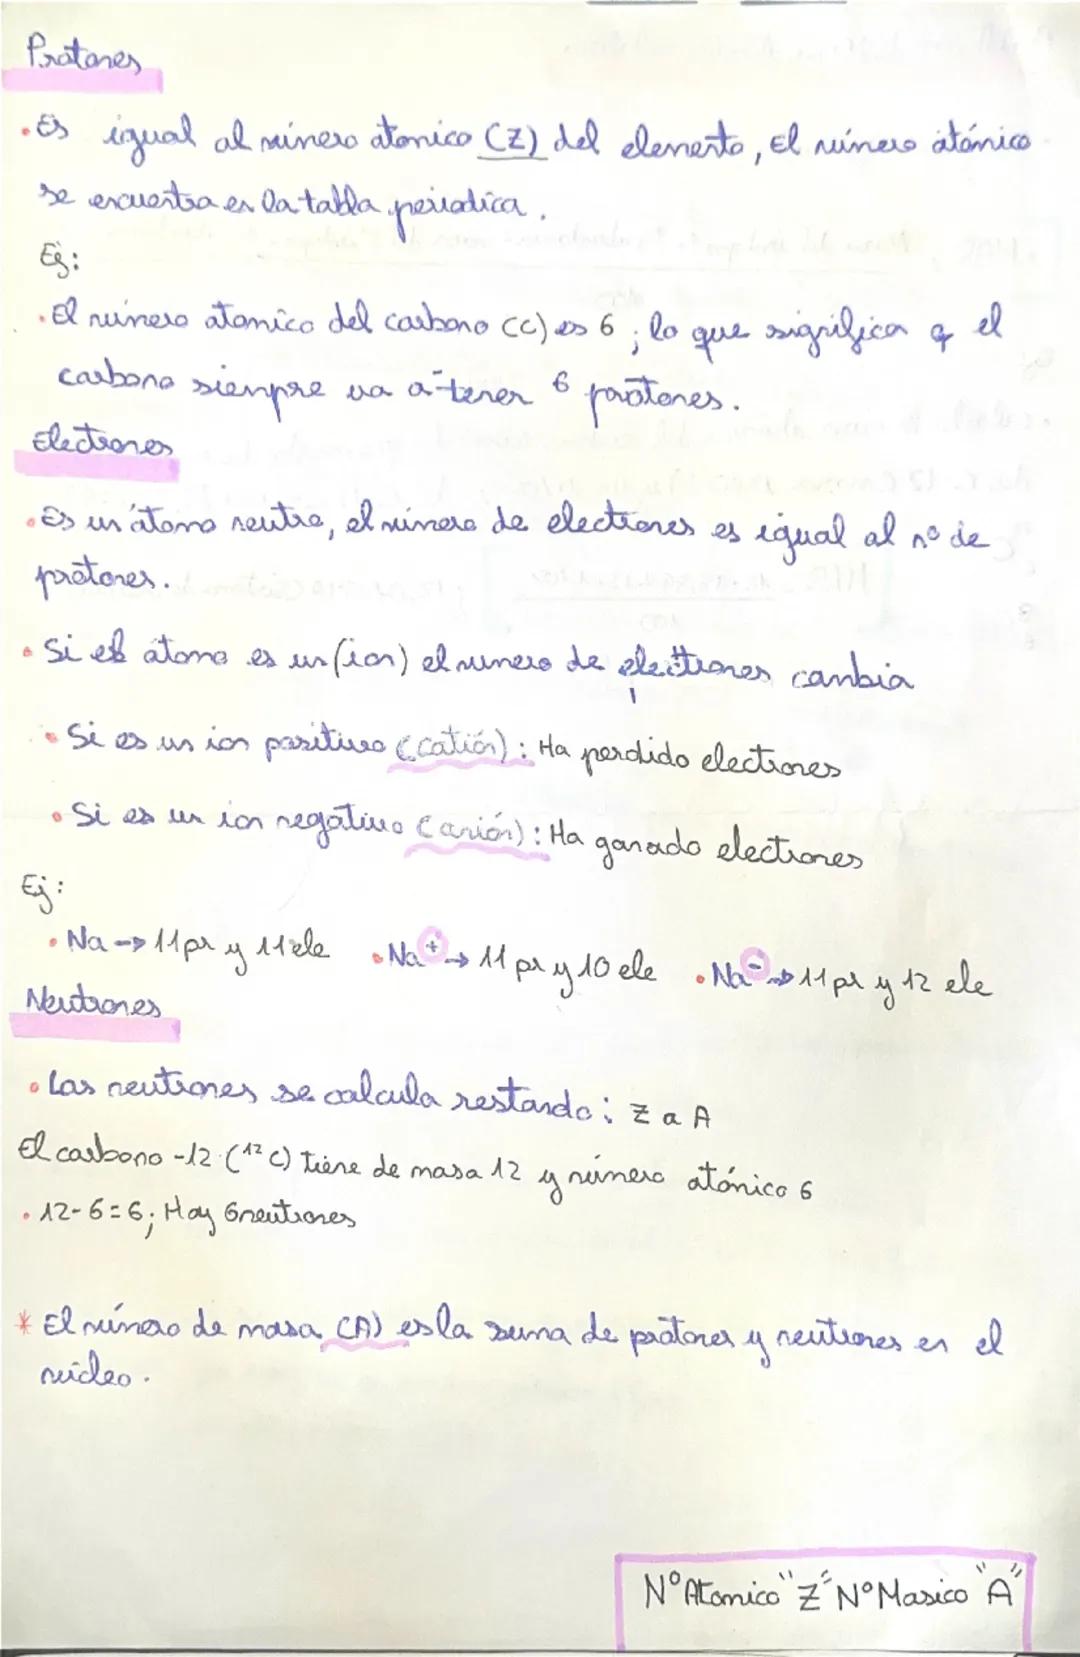 Protones
• Es igual al número atomico (Z) del elemento, El número atómico
se encuentra en la tabla periodica.
Ej:
• El número atomico del carbono (C) es 6; lo que significa q el
carbono siempre va a tener 6 protones.
Electrones
• Es un átomo neutro, el número de electrones es igual al nº de
protones.
• Si el átomo es un (ion) el número de electrones cambia
• Si es un ion positivo (catión): Ha perdido electrones
• Si es un ion negativo (anión): Ha ganado electrones
Ej:
• Na → 11 pr y 11 ele • Na⁺ → 11 pr y 10 ele • Na⁻ → 11 pr y 12 ele
Neutrones
• Los neutrones se calcula restando: Z a A
El carbono -12 (¹²C) tiene de masa 12 y número atómico 6
• 12-6=6; Hay 6 neutrones
* El número de masa (A) es la suma de protones y neutrones en el
núcleo.
Nº Atomico "Z" Nº Masico "A"